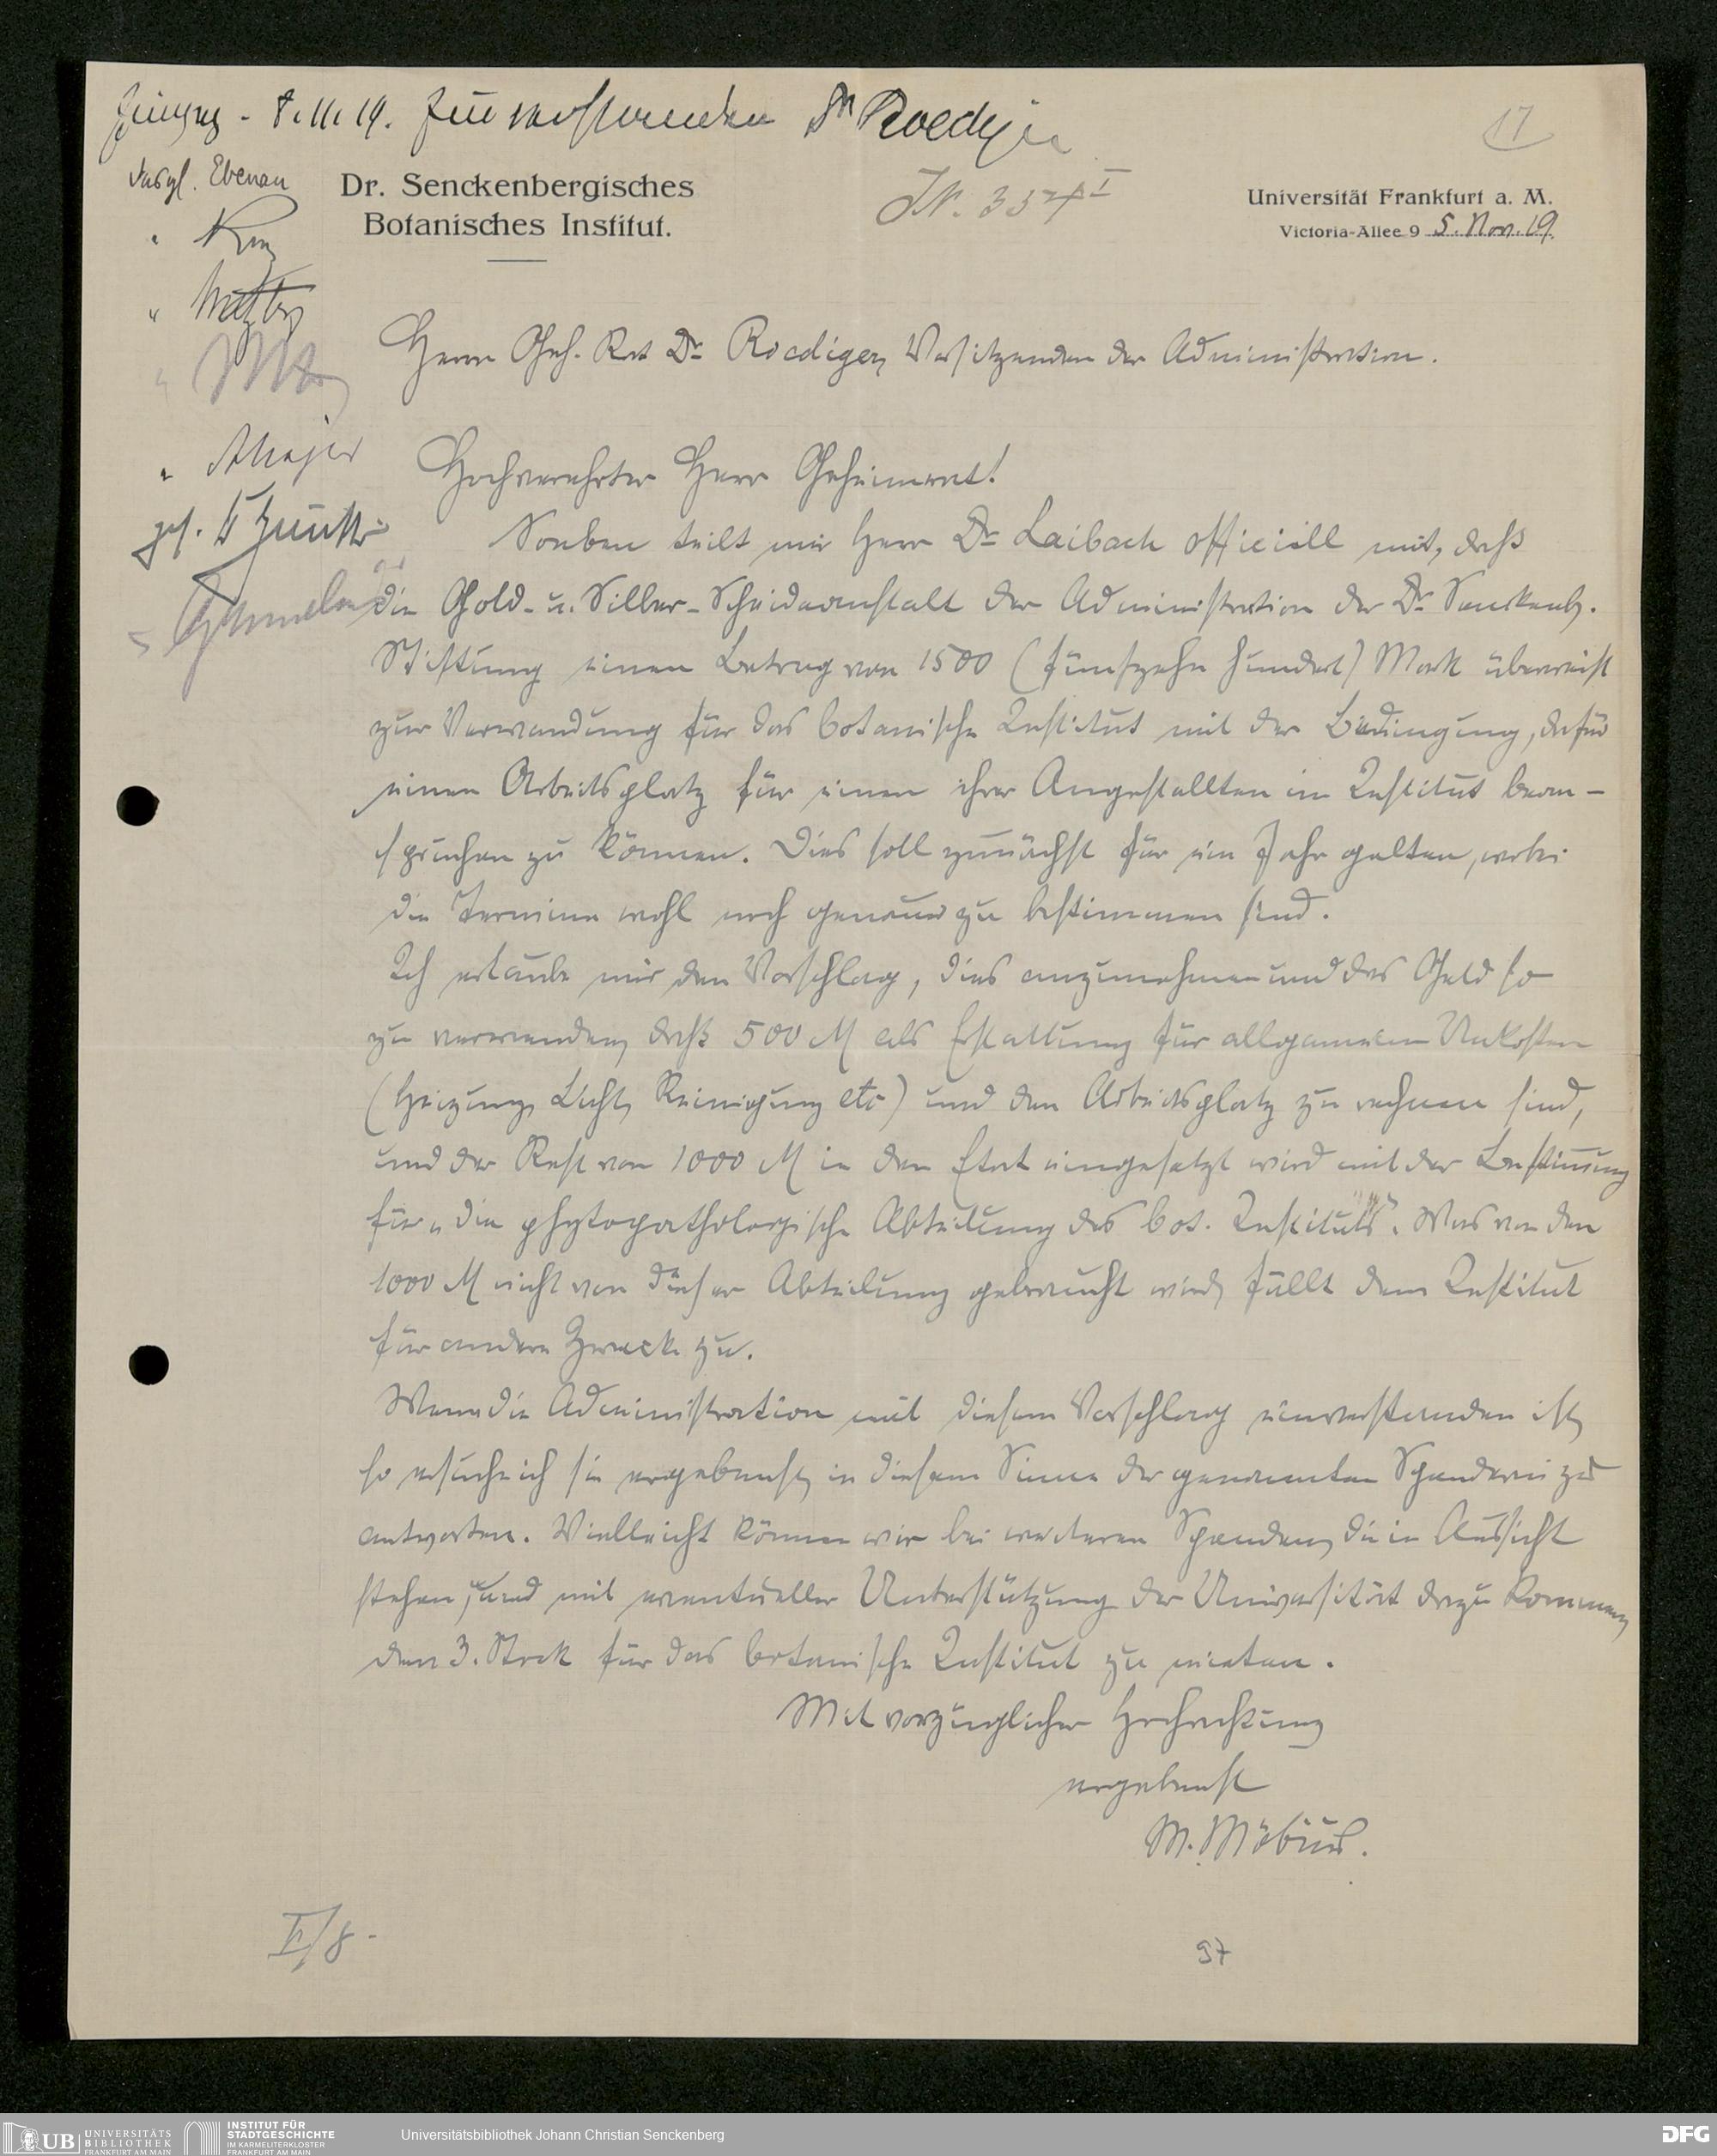 8.11.19. einverstanden Dr Roediger
17
desgl. Ebenau
Dr. Senckenbergisches
Botanisches Institut.
JN. 357 I
Universität Frankfurt a. M.
Victoria-Allee 9 5. Nov. 19.
Herrn Geh. Rat Dr. Roediger, Vorsitzenden der Administration.
Hochverehrter Herr Geheimrat!
Soeben teilt mir Herr Dr. Laibach officiell mit, daß
die Gold- u. Silber-Scheideanstalt der Administration der Dr. Senckenb.
Stiftung einen Betrag von 1500 (fünfzehn hundert) Mark überweist
zur Verwendung für das botanische Institut mit der Bedingung, dafür
einen Arbeitsplatz für einen ihrer Angestellten im Institut bean-
spruchen zu können. Dies soll zunächst für ein Jahr gelten, wobei
die Termine wohl noch genauer zu bestimmen sind.
Ich erlaube mir den Vorschlag, dies anzunehmen und das Geld so
zu verwenden, daß 500 M als Erstattung für allgemeine Unkosten
(Heizung, Licht, Reinigung etc) und den Arbeitsplatz zu rechnen sind,
und der Rest von 1000 M in den Etat eingesetzt wird mit der Bestimmung
für "die phytopathologische Abteilung des bot. Instituts". Was von den
1000 M nicht von dieser Abteilung gebraucht wird, fällt dem Institut
für andere Zwecke zu.
Wenn die Administration mit diesem Vorschlag einverstanden ist,
so ersuche ich sie ergebenst, in diesem Sinne der genannten Spenderin zu
antworten. Vielleicht können wir bei weiteren Spenden, die in Aussicht
stehen, und mit eventueller Unterstützung der Universität dazu kommen,
den 3. Stock für das botanische Institut zu mieten.
Mit vorzüglicher Hochachtung
ergebenst
M. Möbius.
II/8.
97
UB UNIVERSITÄTS
BIBLIOTHEK
FRANKFURT AM MAIN
INSTITUT FÜR
STADTGESCHICHTE
IM KARMELITERKLOSTER
FRANKFURT AM MAIN
Universitätsbibliothek Johann Christian Senckenberg
DFG